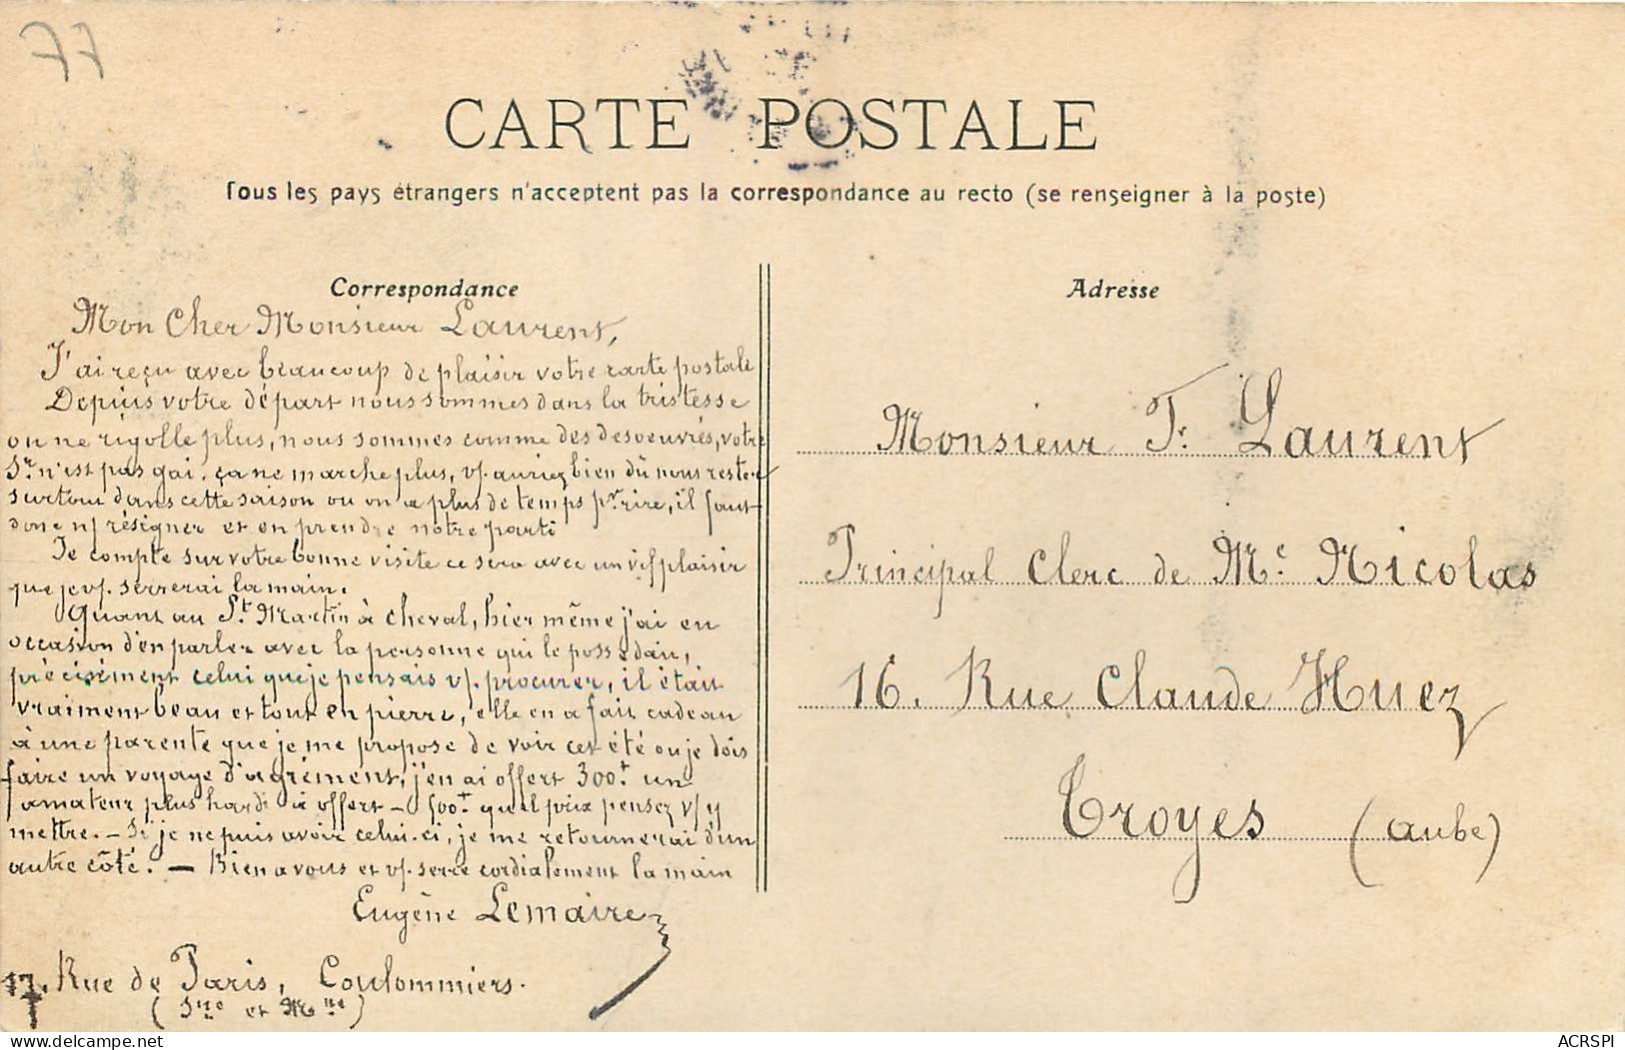 77
CARTE POSTALE
Tous les pays étrangers n'acceptent pas la correspondance au recto (se renseigner à la poste)
Correspondance
Mon Cher Monsieur Laurent,
J'ai reçu avec beaucoup de plaisir votre carte postale
Depuis votre départ nous sommes dans la tristesse
on ne rigolle plus, nous sommes comme des desoeuvrés, votre
Sr n'est pas gai, ça ne marche plus, vs. auriez bien dû nous rester
surtout dans cette saison ou on a plus de temps pr rire, il faut
donc ns résigner et en prendre notre parti
Je compte sur votre bonne visite ce sera avec un vif plaisir
que je vs. serrerai la main.
Quant au St. Martin à cheval, hier même j'ai eu
occasion d'en parler avec la personne qui le possédait,
précisément celui que je pensais vs. procurer, il était
vraiment beau et tout en pierre, elle en a fait cadeau
à une parente que je me propose de voir cet été ou je dois
faire un voyage d'agrément, j'en ai offert 300f. un
amateur plus hardi a offert - 500f. quel prix pensez vs y
mettre. - Si je ne puis avoir celui-ci, je me retournerai d'un
autre côté. - Bien a vous et vs. serre cordialement la main
Eugène Lemaire
17, Rue de Paris, Coulommiers.
(Sne et Mne)
Adresse
Monsieur F. Laurent
Principal Clerc de Me. Nicolas
16. Rue Claude Huez
Troyes (aube)
ACRSPI